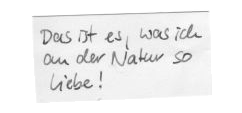 Das ist es, was ich
an der Natur so
liebe!